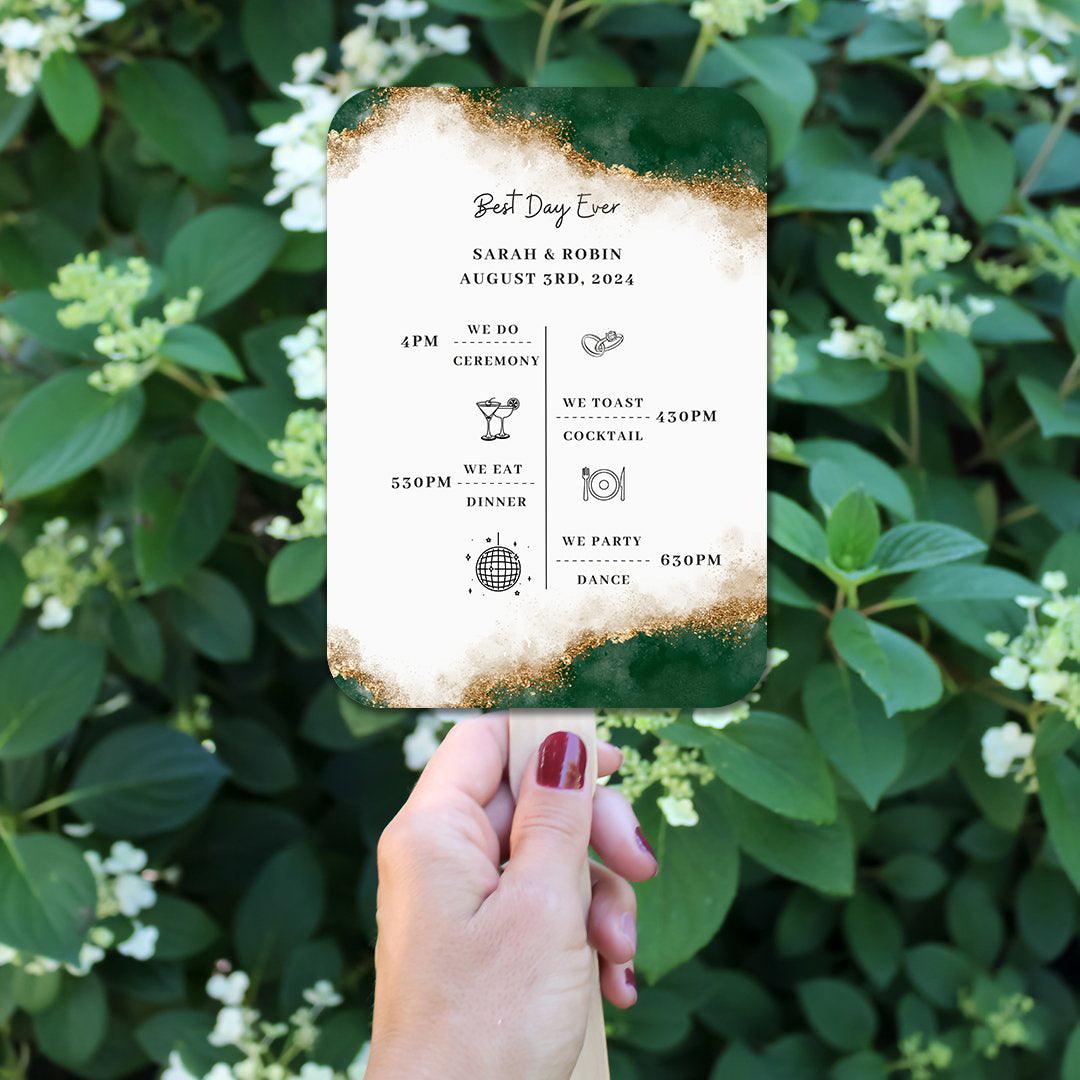 Best Day Ever
SARAH & ROBIN
AUGUST 3RD, 2024
WE DO
4PM
CEREMONY
WE TOAST
430PM
COCKTAIL
WE EAT
530PM
DINNER
WE PARTY
630PM
DANCE